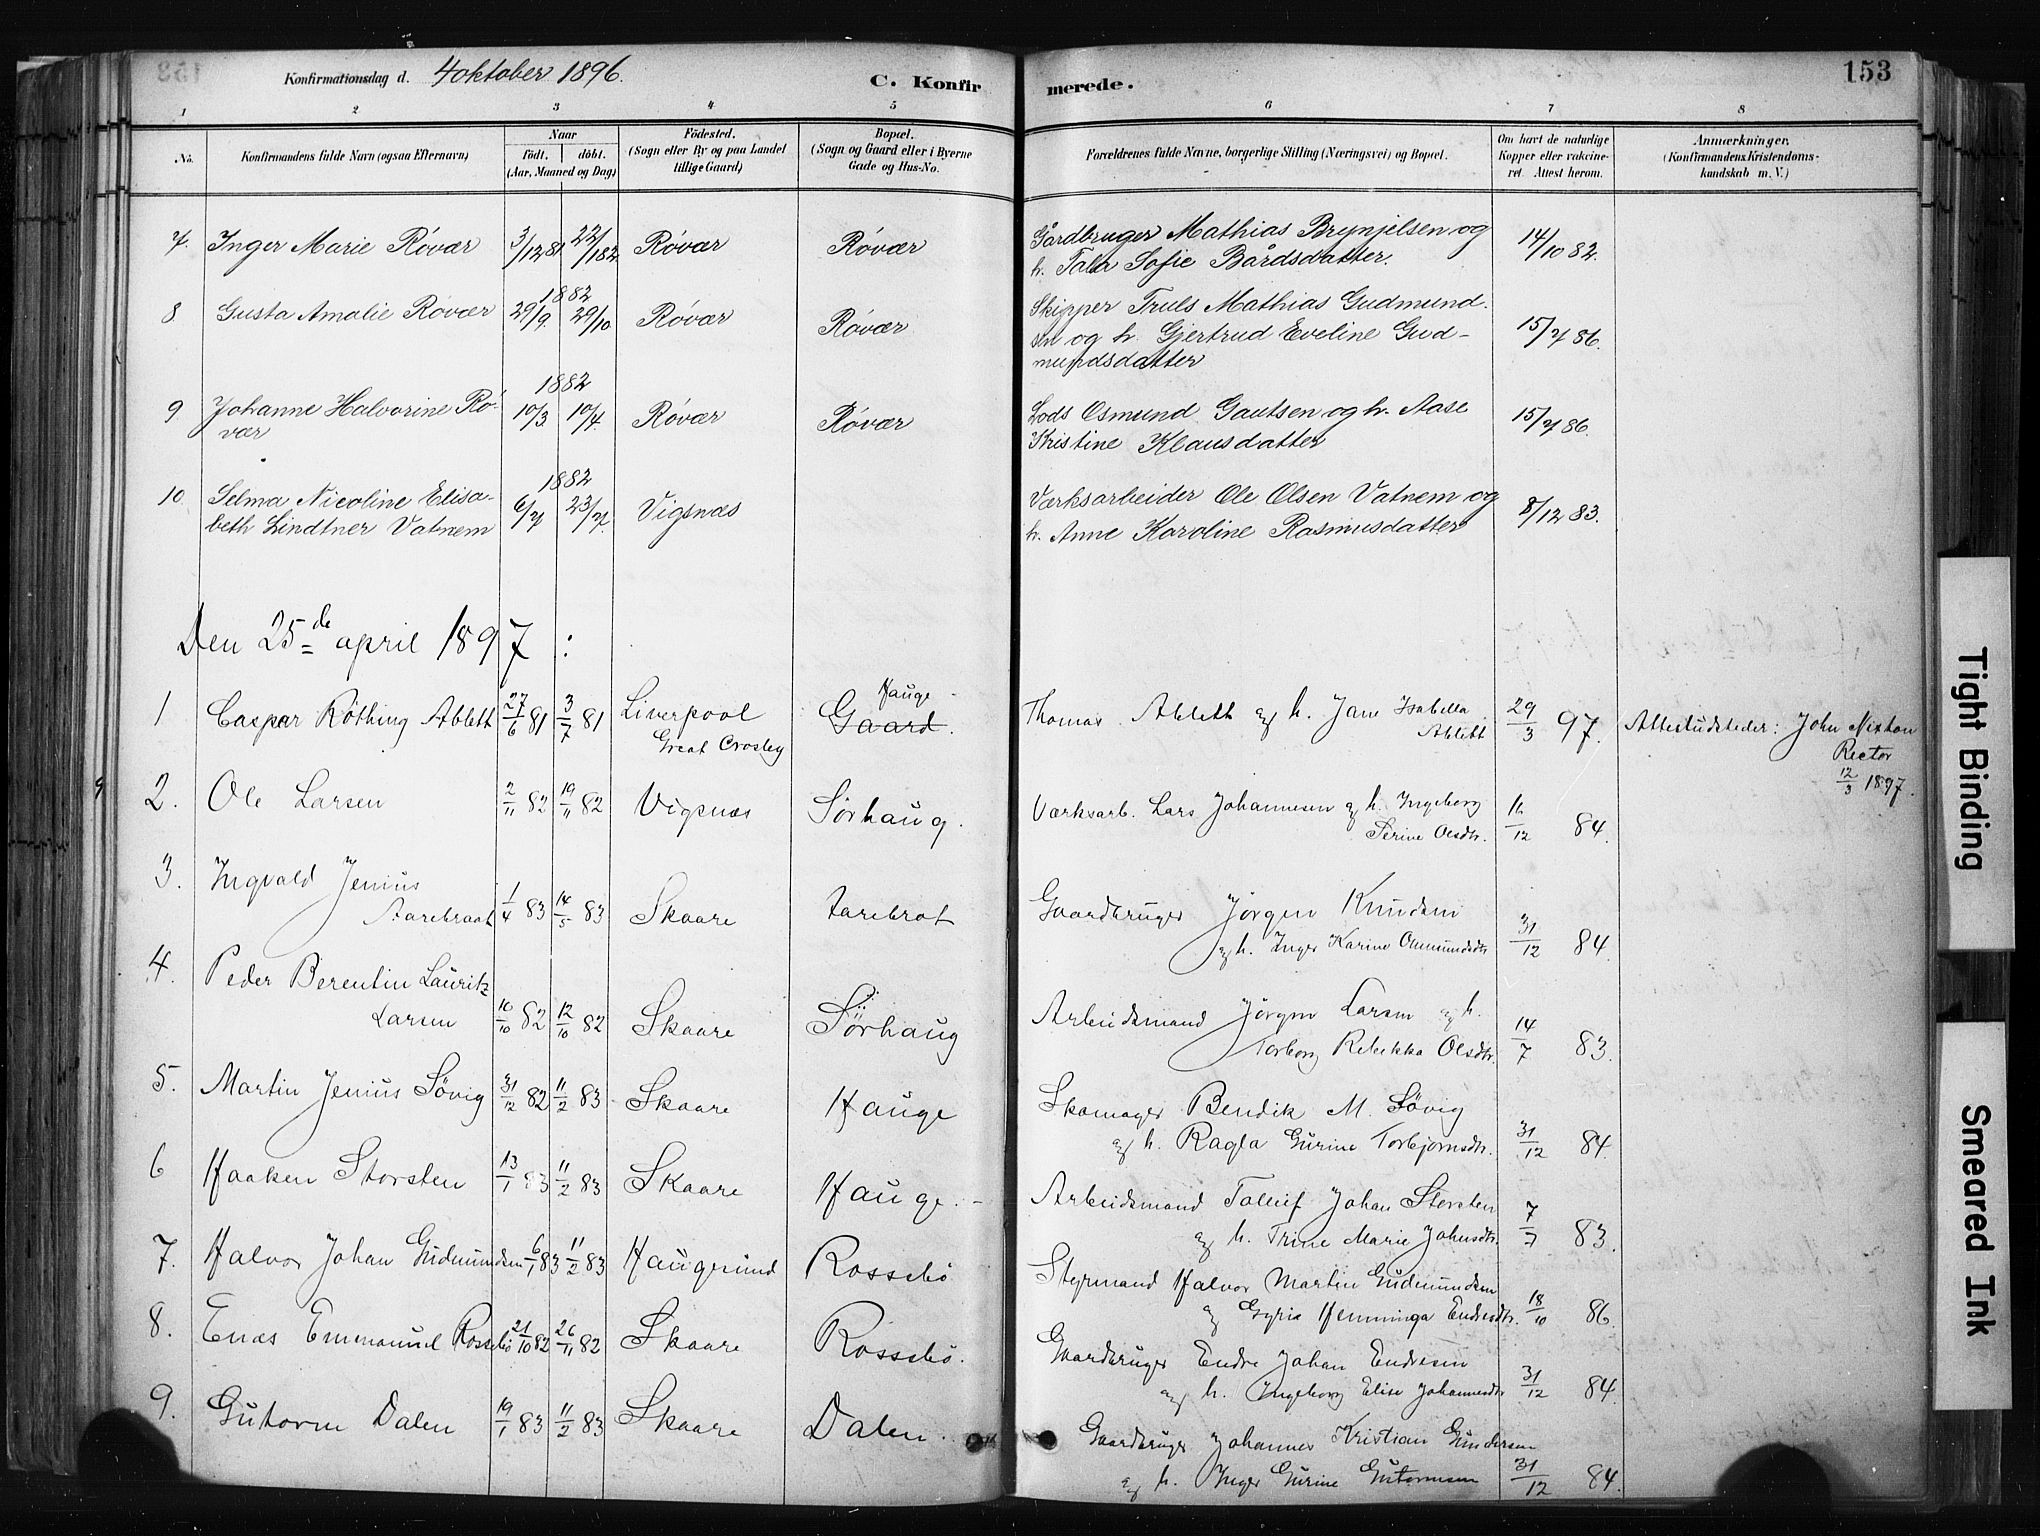 Konfirmationsdag d. 4 oktober 1896.
C. Konfirmerede.
153
1 2 3 4 5 6 7 8
No.
Konfirmandens fulde Navn (ogsaa Efternavn)
Naar
födt. döbt.
(Aar, Maaned og Dag)
Födested.
(Sogn eller By og paa Landet
tillige Gaard)
Bopæl.
(Sogn og Gaard eller i Byerne
Gade og Hus-No.
Forældrenes fulde Navne, borgerlige Stilling (Næringsvei) og Bopæl.
Om havt de naturlige
Kopper eller vakcine-
ret. Attest herom.
Anmærkninger.
(Konfirmandens Kristendoms-
kundskab m. V.)
7. Inger Marie Rövær 3/12 81 22/1 82 Rövær Rövær Gårdbruger Mathias Brynjelsen og
h. Sofie Bårdsdatter. 14/10 82.
8 Gusta Amalie Rövær 1882 29/9. 29/10 Rövær Rövær Skipper Truls Mathias Gudmund
sen og h. Gjertrud Eveline Gud-
mundsdatter 15/7 86.
9 Johanne Halvorine Rö-
vær 1882 10/3 10/4. Rövær Rövær Lods Osmund Gautsen og h. Aase
Kristine Klausdatter 15/7 86.
10 Selma Nicoline Elisa-
beth Lindtner Vatnem 1882 6/7 23/7. Vigsnæs Værksarbeider Ole Olsen Vatnem og
h. Anne Karoline Rasmusdatter 8/12 83.
Den 25de april 1897 :
1 Caspar Röthing Ablett 27/6 81 3/7 81 Liverpool
Great Crosby Hauge
Gaard. Thomas Ablett og h. Jane Isabella
Ablett 29/3 97. Attestudsteder: John Nixton
Rector
12/3 1897.
2. Ole Larsen 2/11 82 19/11 82 Vigsnæs Sörhaug. Værksarb. Lars Johannesen og h. Ingeborg
Serine Olsdtr. 11/12 84.
3. Ingvald Jenius
Aarebraat 1/4 83 14/5 83 Skaare Aarebrot Gaardbruger Jörgen Knudsen
og h. Inger Karine Osmundsdtr 31/12 84.
4. Peder Berentin Lauritz
Larsen 10/10 82 12/10 82 Skaare Sörhaug Arbeidsmand Jörgen Larsen og h.
Torborg Rebekka Olsdtr. 14/7 83.
5. Martin Jenius Sövig 31/12 82 11/2 83 Skaare Hauge Skomager Bendik M. Sövig
og h. Ragla Gurine Torbjörnsdtr. 31/12 84.
6 Haaken Storsten 13/1 83 11/2 83 Skaare Hauge. Arbeidsmand Tollief Johan Storsten
og h. Trine Marie Johnsdtr. 7/7 83.
7. Halvor Johan Gudmundsen 6/1 83 11/2 83 Haugesund Rossebö Styrmand Halvor Martin Gudmundsen
og Gyria Henninga Endresdtr. 18/10 86.
8. Enæs Emmanuel Rossebö 21/10 82 26/11 82 Skaare Rossebö. Gaardbruger Endre Johan Endresen
og h. Ingeborg Elise Johannesdtr 31/12 84.
9. Gutorm Dalen 19/1 83 11/2 83 Skaare Dalen. Gaardbruger Johannes Kristian Gundersen
og h. Inger Gurine Gutormsen 31/12 84.
Tight Binding
Smeared Ink